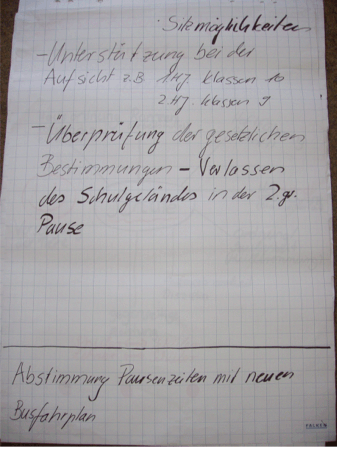 Sitzmöglichkeiten
- Unterstützung bei der
Aufsicht z.B 1.Hj klassen 10
2.Hj. klassen 9
- Überprüfung der gesetzlichen
Bestimmungen - Verlassen
des Schulgeländes in der 2. gr.
Pause
Abstimmung Pausenzeiten mit neuen
Busfahrplan